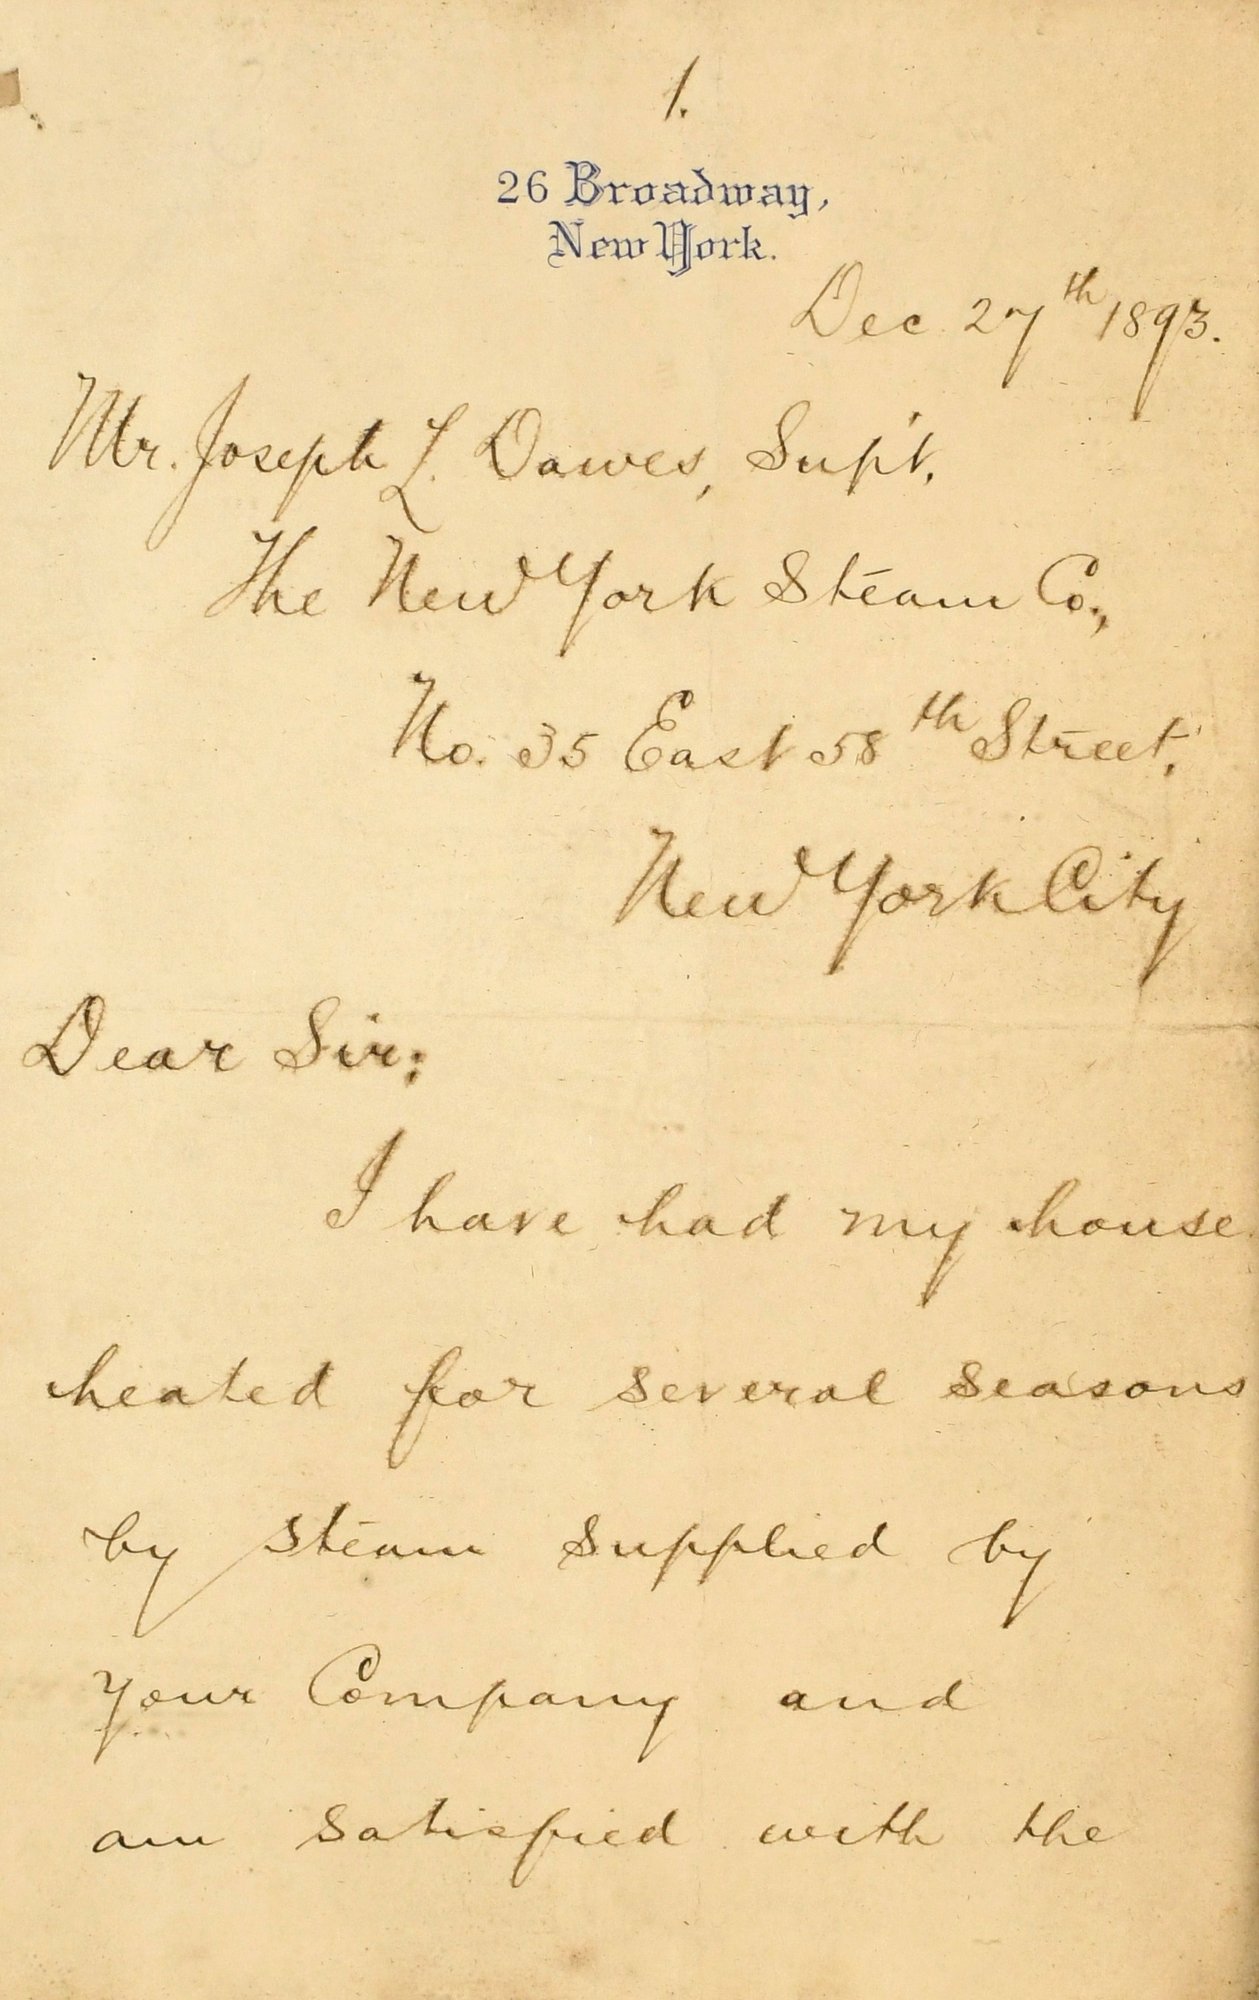 1.
26 Broadway,
New York.
Dec 27th 1893.
Mr. Joseph L. Dawes, Sup't.
The New York Steam Co.,
No. 35 East 58th Street,
New York City
Dear Sir:
I have had my house
heated for several seasons
by steam supplied by
your Company and
am satisfied with the